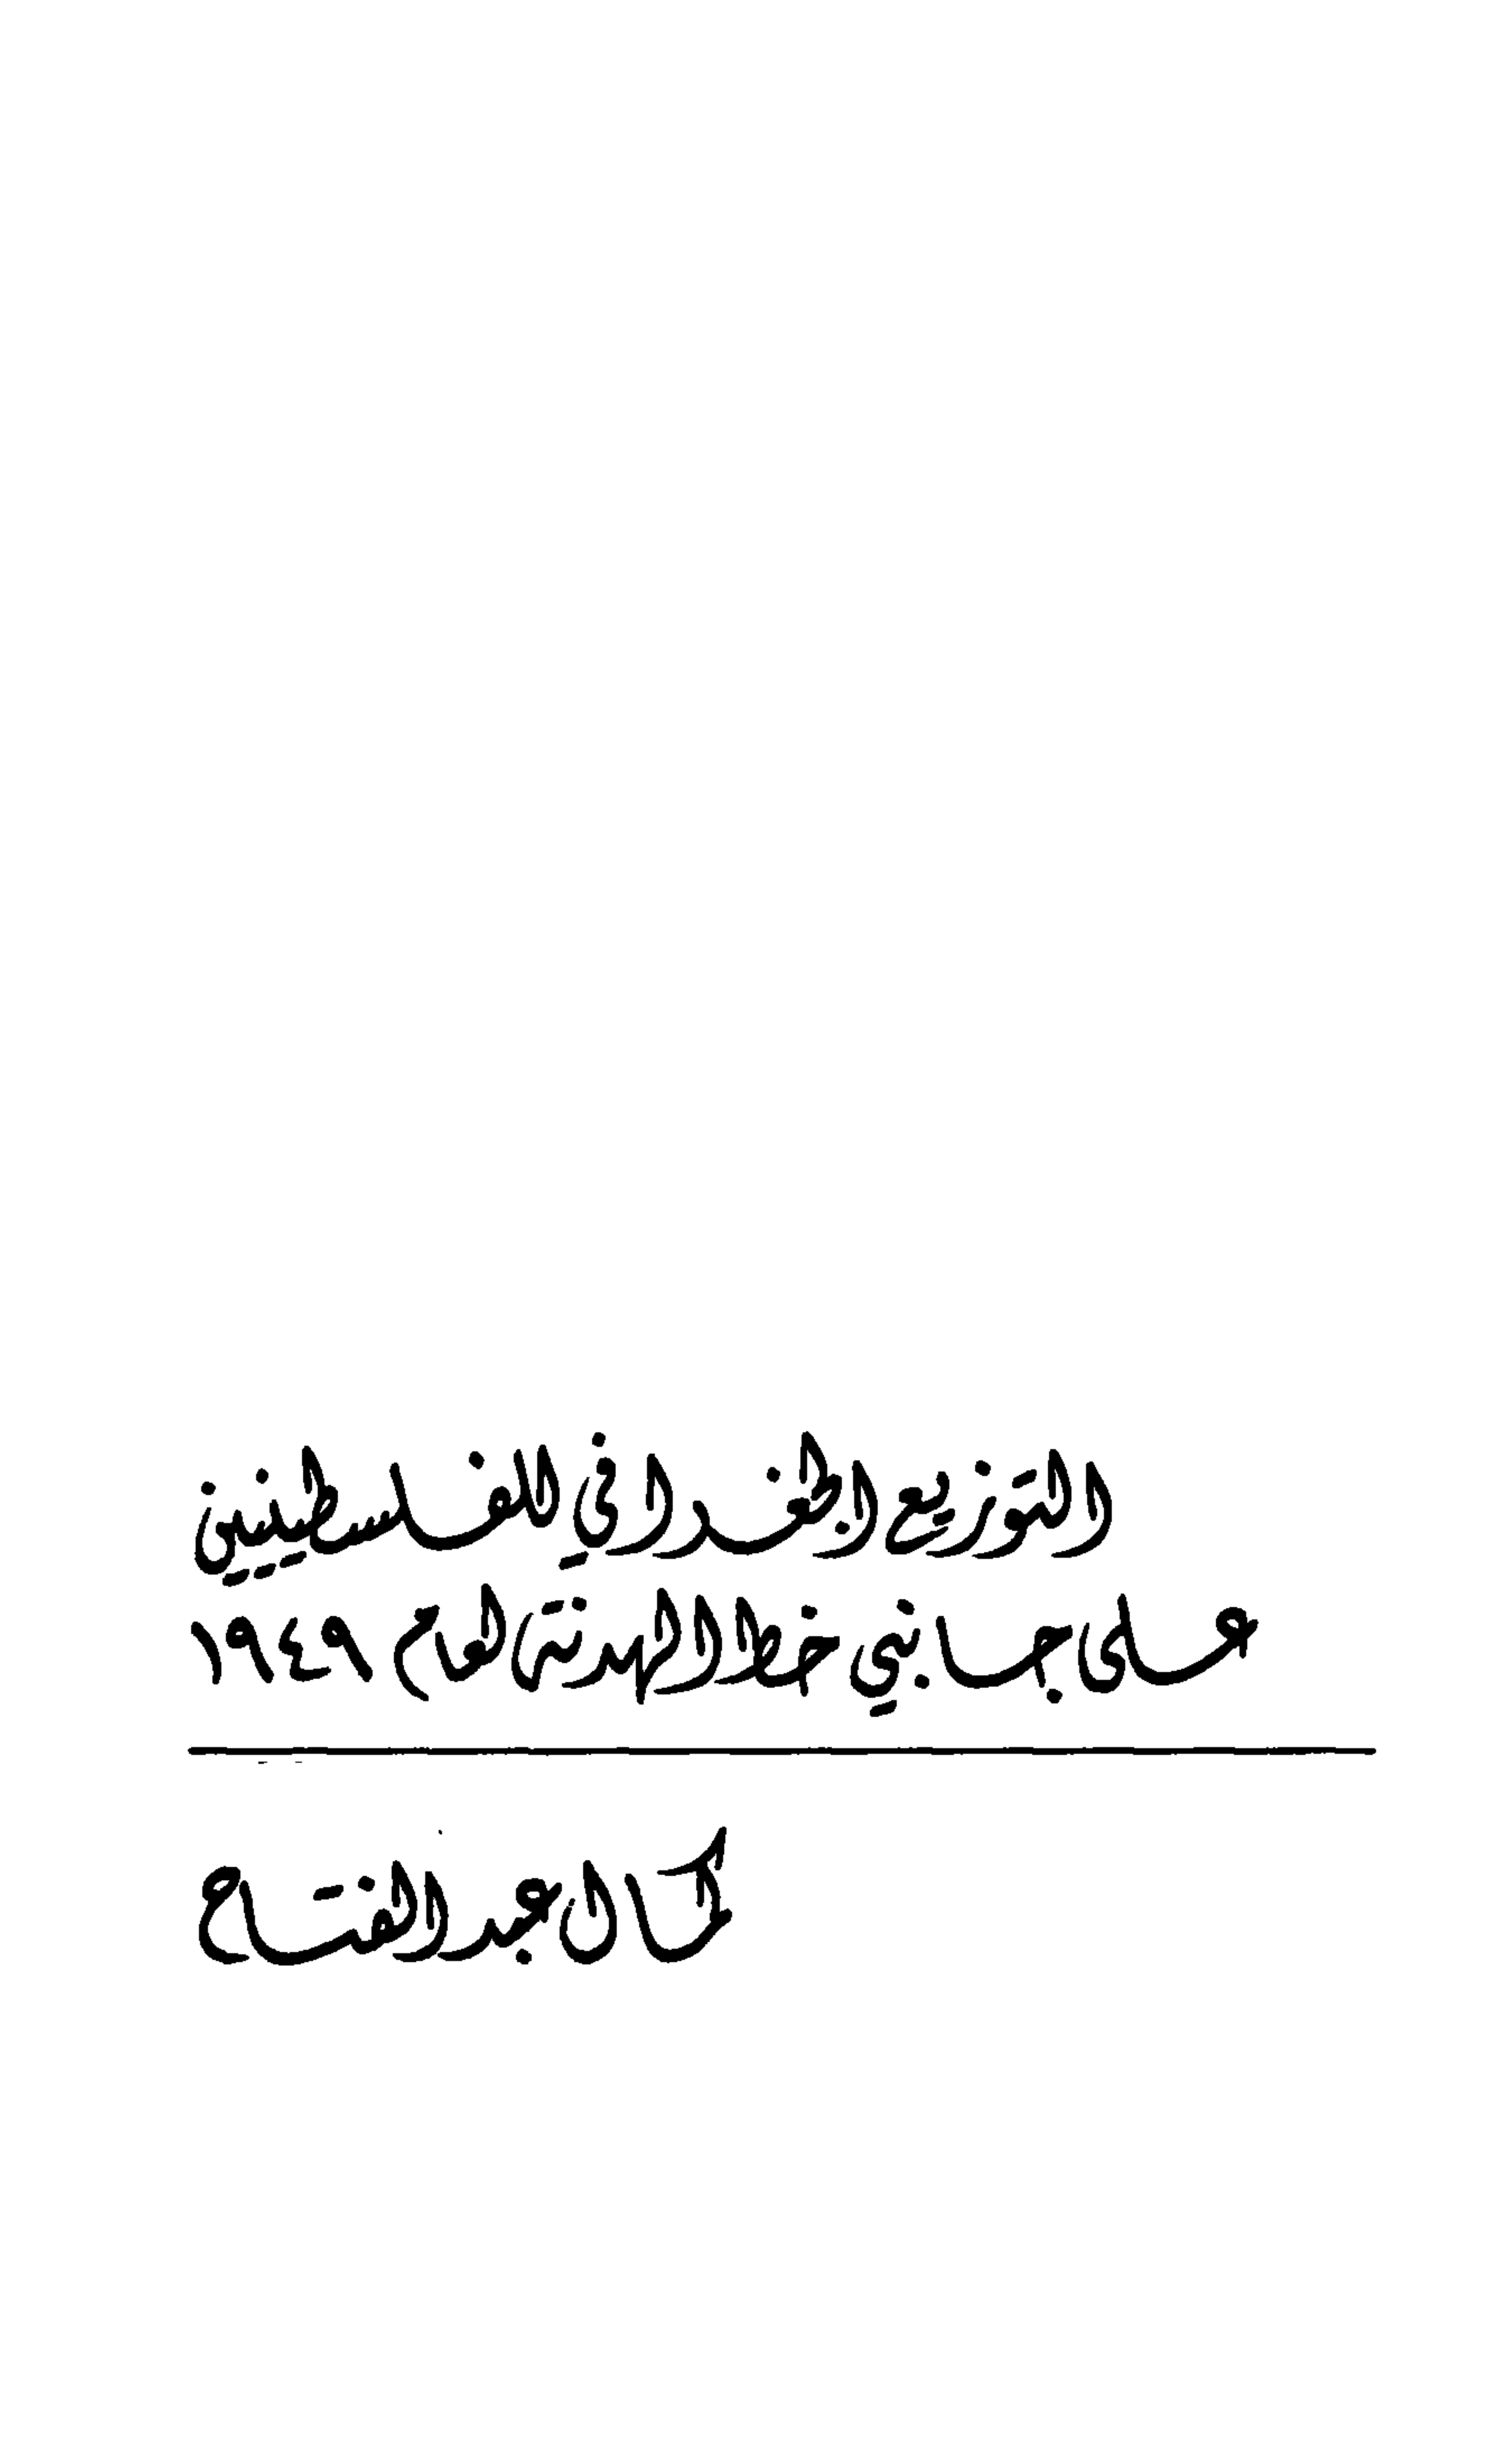 التوزيع الجغرافي للفلسطينيين
على جانبي خط الهدنة لعام ١٩٤٩
كمال عبد الفتاح